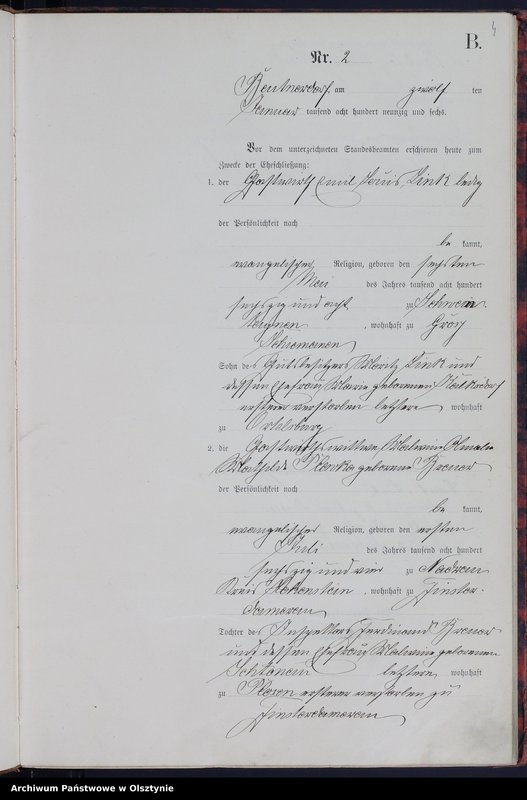 4
B.
Nr. 2
Beutnerdorf am zwölf ten
Januar tausend acht hundert neunzig und sechs.
Vor dem unterzeichneten Standesbeamten erschienen heute zum
Zwecke der Eheschließung:
1. der Gastwirth Emil Louis Link ledig
der Persönlichkeit nach
be kannt,
evangelischer Religion, geboren den sechsten
Mai des Jahres tausend acht hundert
sechszig und acht zu
, wohnhaft zu Groß
Schiemanen
Sohn des Gutsbesitzers Moritz Link und
dessen Ehefrau Marie geborenen
ersterer verstorben letztere wohnhaft
zu Ortelsburg
2. die Gastwirthswittwe Malwine Amalie
Mathilde geborene
der Persönlichkeit nach
be kannt,
evangelischer Religion, geboren den ersten
Juli des Jahres tausend acht hundert
sechszig und vier zu Nadrau
Kreis Hohenstein, wohnhaft zu Finster-
damerau
Tochter des Inspektors Ferdinand
und dessen Ehefrau Malwine geborenen
letztere wohnhaft
zu ersterer verstorben zu
Finsterdamerau
Archiwum Państwowe w Olsztynie